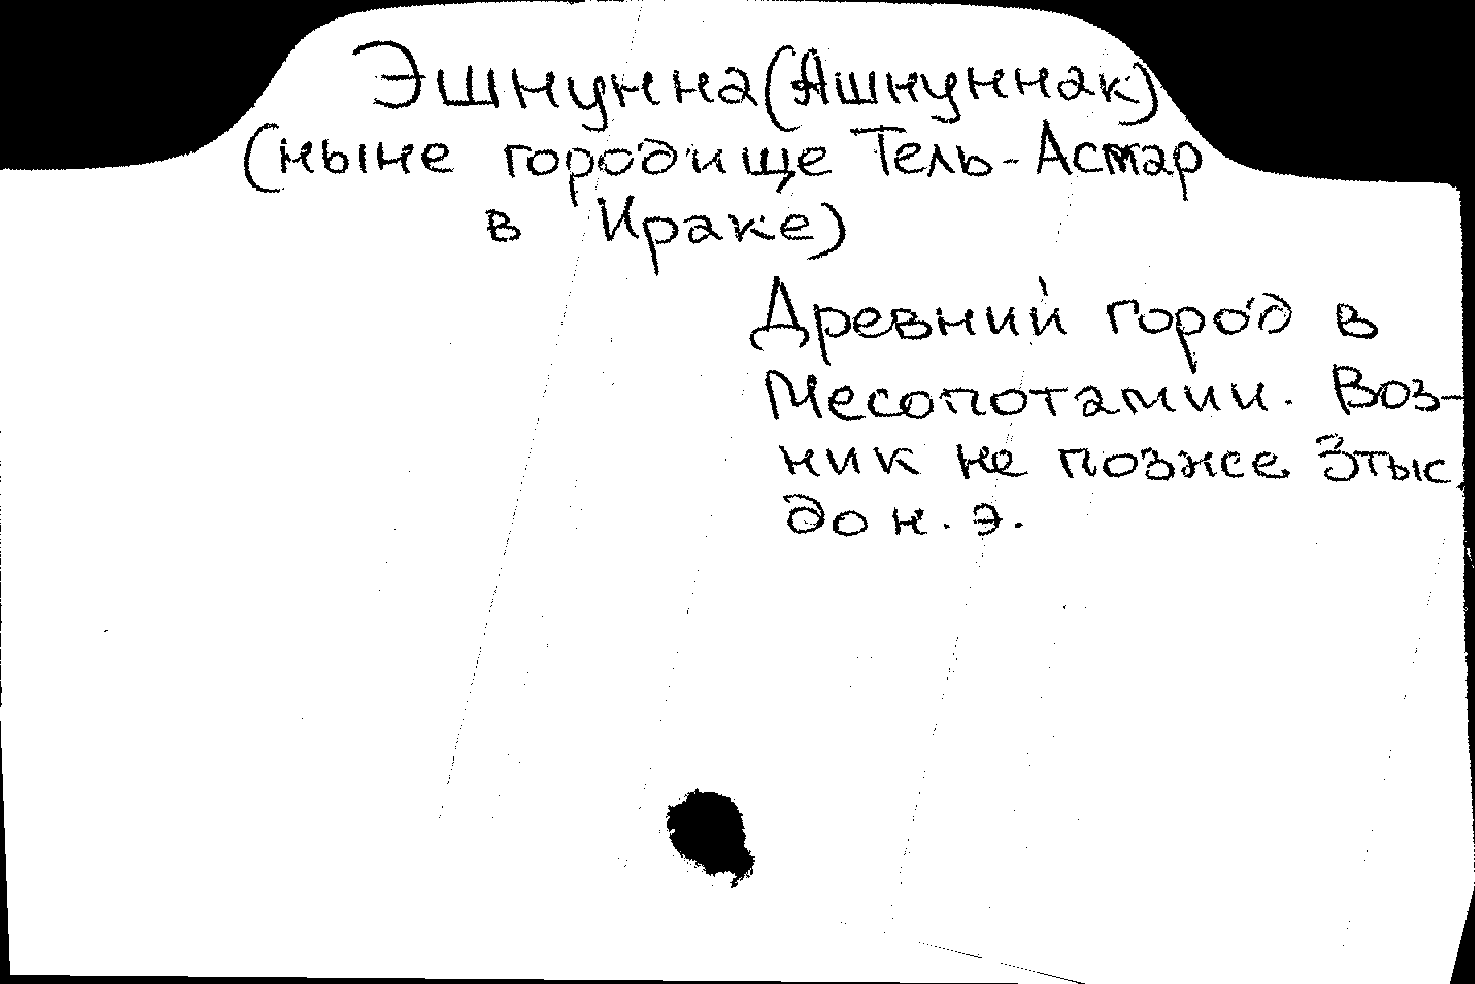 Эшнунна (Ашнуннак)
(ныне городище Тель-Асмар
в Ираке)
Древний город в
Месопотамии. Воз-
ник не позже 3 тыс.
до н. э.